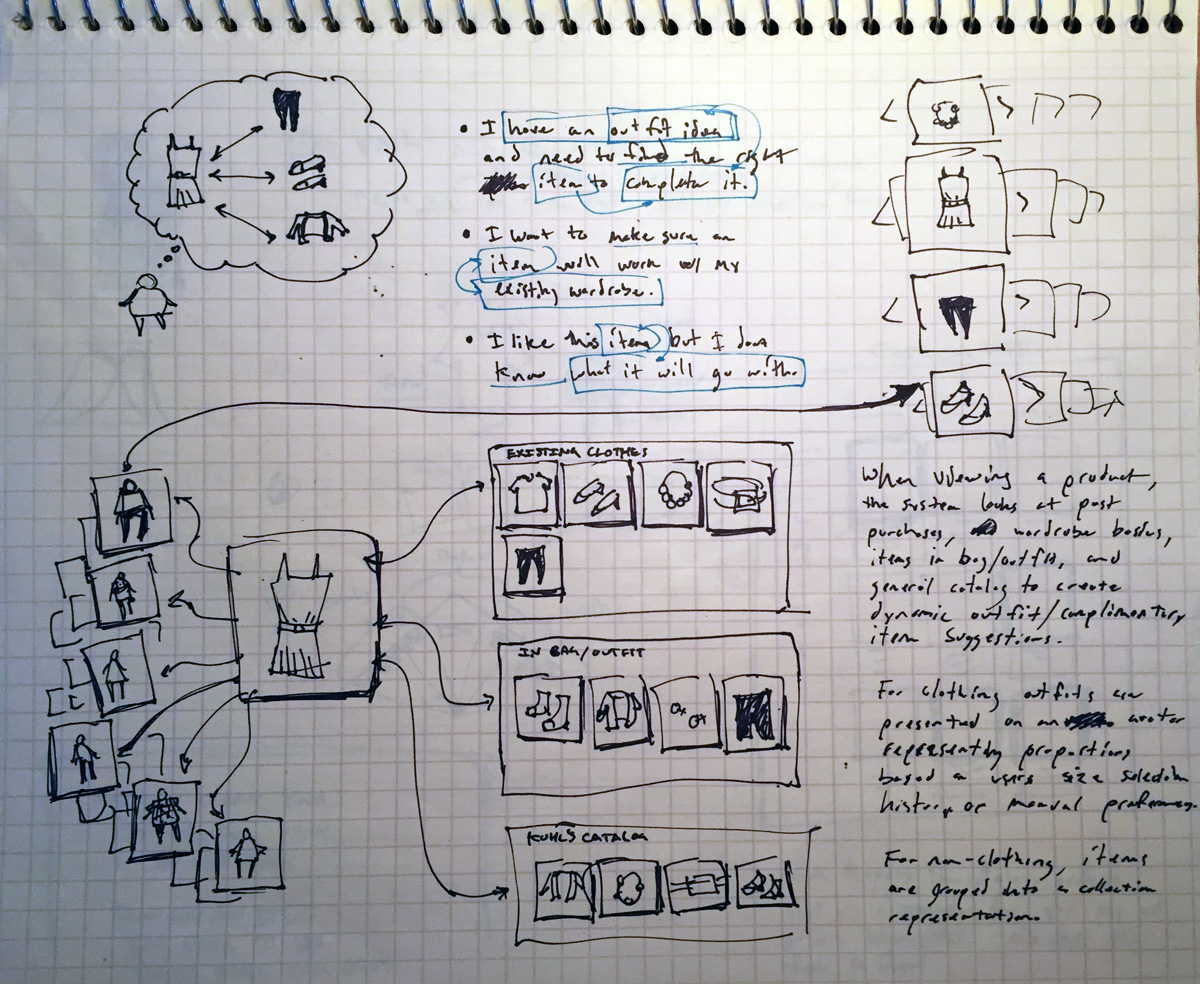 • I have an outfit idea
and need to find the right
item to complete it.
• I want to make sure an
item will work w/ my
existing wardrobe.
• I like this item but I don't
know what it will go with.
EXISTING CLOTHES
IN BAG/OUTFIT
KOHL'S CATALOG
When viewing a product,
the system looks at past
purchases, wardrobe basics,
items in bag/outfit, and
general catalog to create
dynamic outfit/complimentary
item suggestions.
For clothing outfits are
presented on an avatar
representing proportions
based on users size selection
history or manual preferences.
For non-clothing, items
are grouped into a collection
representation.